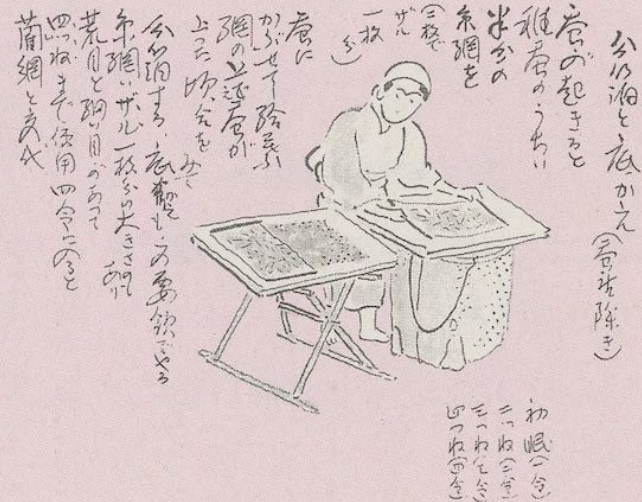 分箔と底かえ(蚕沙除き)
蚕が起きると
稚蚕のうちは
半分の
糸網を
ザル
一枚
分)
蚕に
かぶせて給桑
網の上迄蚕が
上った頃合を
みて
分箔する、底替もこの要領でやる
糸網はザル一枚分の大きさ
あり
荒目と細い目があって
四つねまで使用 四令に入ると
藺網と交代
初眠(一令)
二つね(二令)
三つね(三令)
四つね(四令)